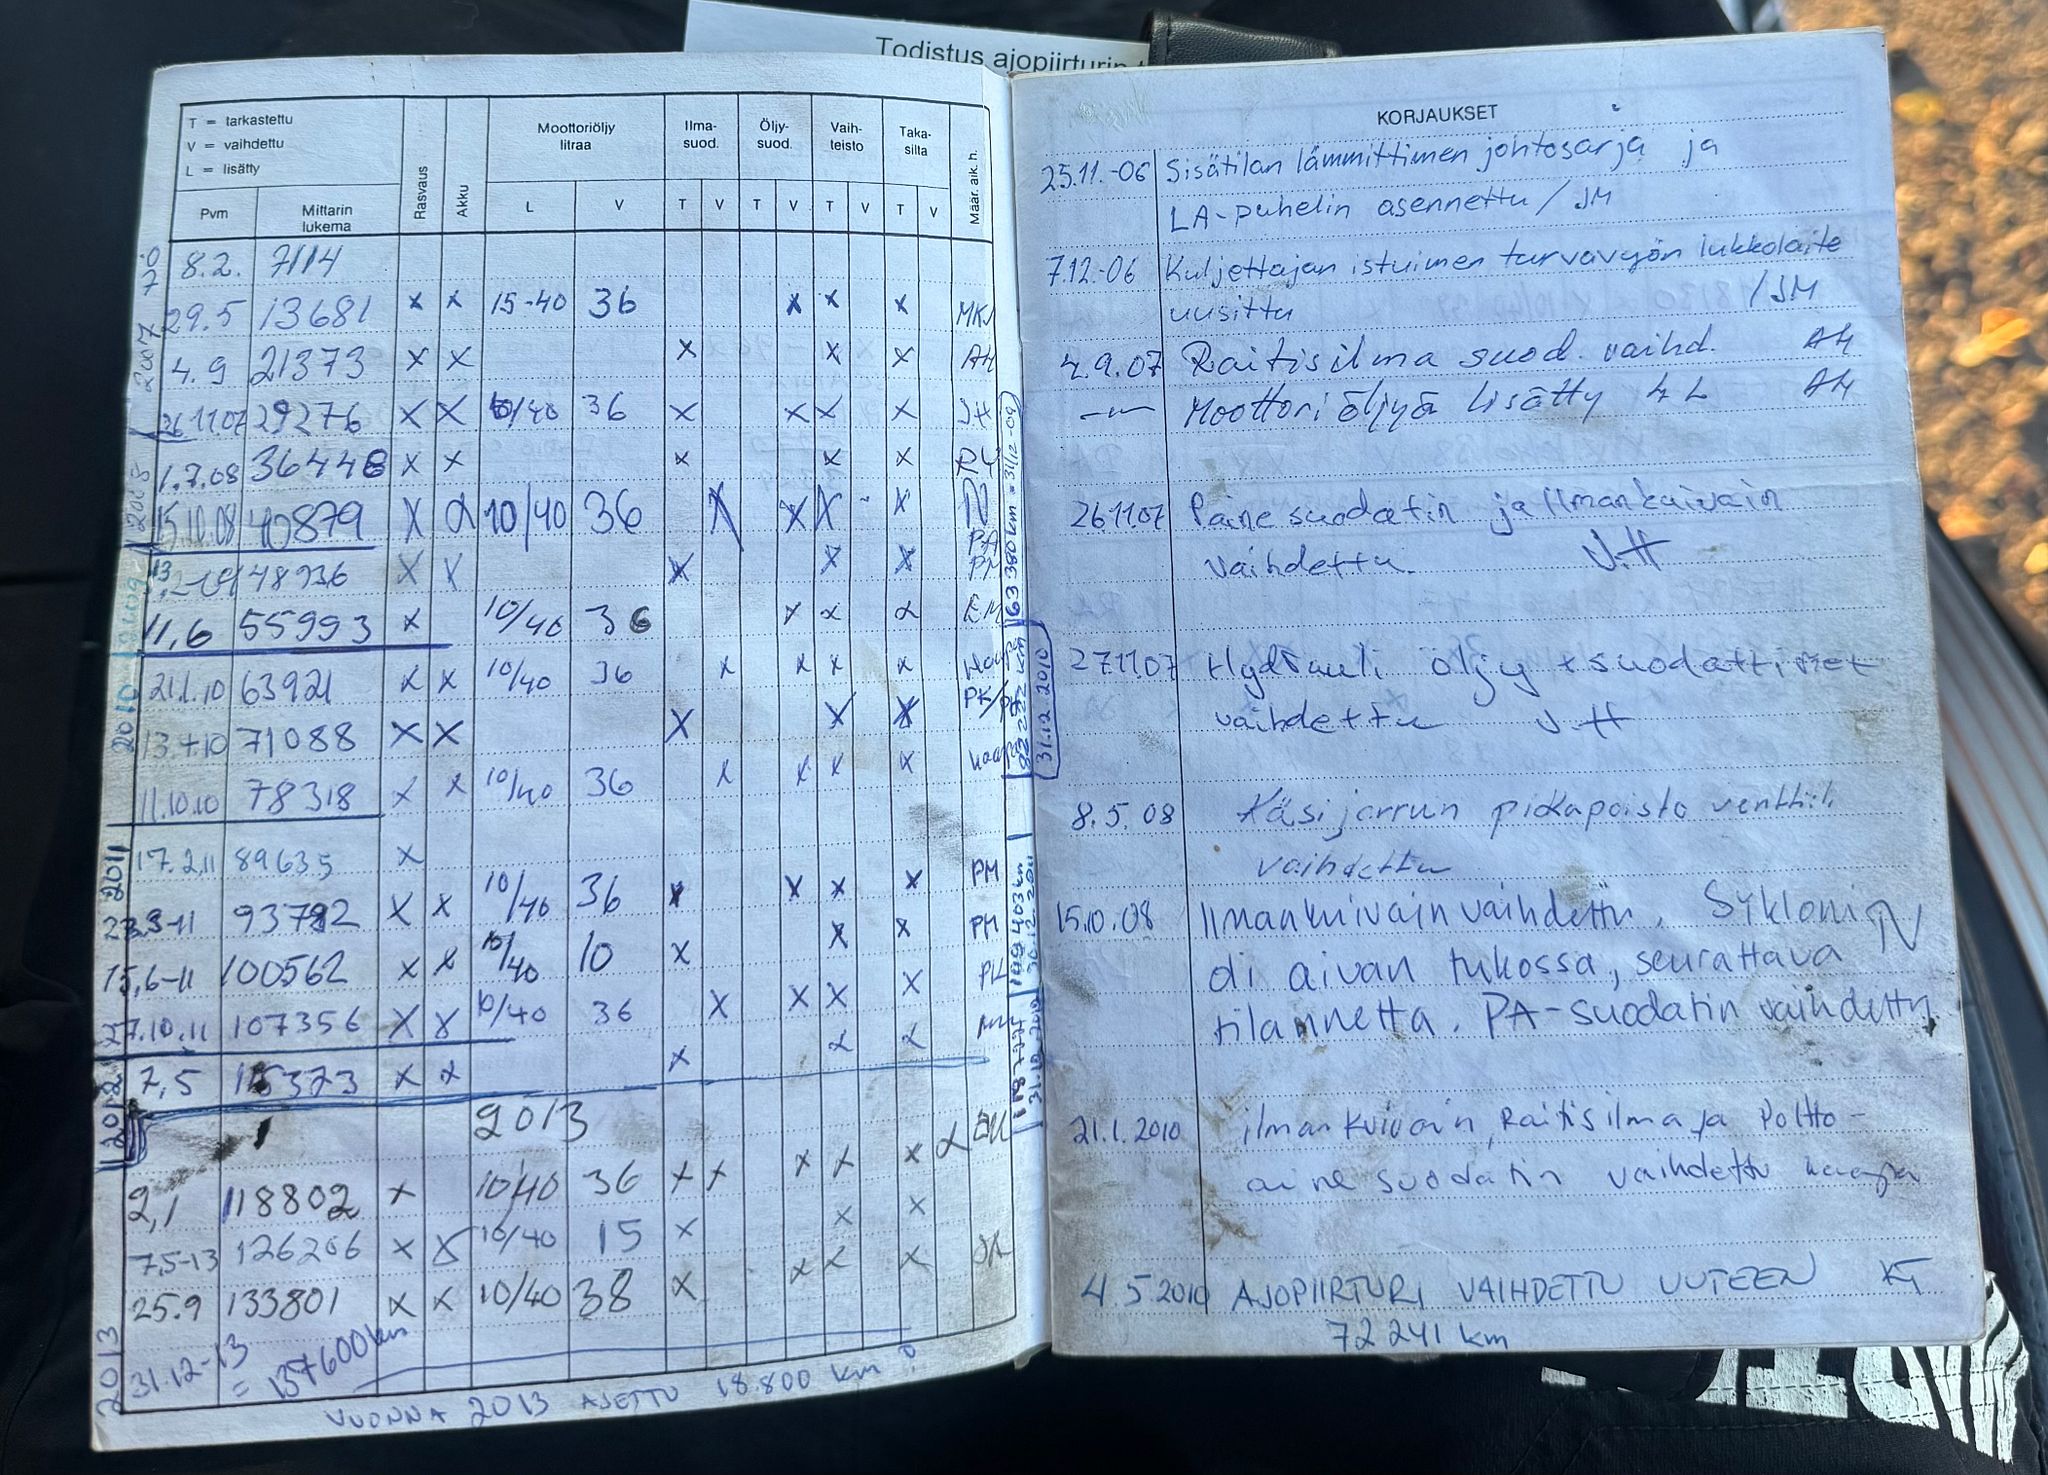 Todistus ajopiirturin
T = tarkastettu
V = vaihdettu
L = lisätty
Pvm
Mittarin lukema
Rasvaus
Akku
Moottoriöljy litraa
L V
Ilma-suod.
T V
Öljy-suod.
T V
Vaih-teisto
T V
Taka-silta
T V
Määr. aik. h.
2007
8.2. 7114
29.5 13681 x x 15-40 36 x x x MKJ
4.9 21373 x x x x x AH
26.11.07 29276 x x 10/40 36 x x x x JH
2008
1.7.08 36448 x x x x x
15.10.08 40879 x x 10/40 36 x x x x
2009
48936 x x x x x PM
11,6 55993 x 10/40 36 x x x EM
2010
21.1.10 63921 x x 10/40 36 x x x x
13.7.10 71088 x x x x x
11.10.10 78318 x x 10/40 36 x x x x
2011
17.2.11 89635 x
93792 x x 10/40 36 x x x x PM
15,6-11 100562 x x 10/40 10 x x x PM
27.10.11 107356 x x 10/40 36 x x x x
2012
7,5 115373 x x x x x
2013
2,1 118802 x 10/40 36 x x x x x x EM
7,5-13 126206 x x 10/40 15 x x x
25.9 133801 x x 10/40 38 x x x x
2013
31.12-13
= 137600 km
VUONNA 2013 AJETTU 18.800 km
63 380 km = 31/12-09
31.12 2010
109 403 km
30.12.2011
KORJAUKSET
23.11.-06 Sisätilan lämmittimen johtosarja ja
LA-puhelin asennettu / JM
7.12.-06 Kuljettajan istuimen turvavyön lukkolaite
uusittu / JM
4.9.07 Raitisilma suod. vaihd. AH
-"- Moottoriöljyä lisätty 4 L AH
26.11.07 Paine suodatin ja Ilmankuivain
vaihdettu. J.H
27.11.07 Hydrauli öljy + suodattimet
vaihdettu J.H
8.5.08 Käsijarrun pikapoisto venttiili
vaihdettu
15.10.08 Ilmankuivain vaihdettu. Sykloni
oli aivan tukossa, seurattava
tilannetta. PA-suodatin vaihdettu.
21.1.2010 ilman kuivain, Raitisilma ja Poltto-
aine suodatin vaihdettu
4.5 2010 AJOPIIRTURI VAIHDETTU UUTEEN KT
72 241 km